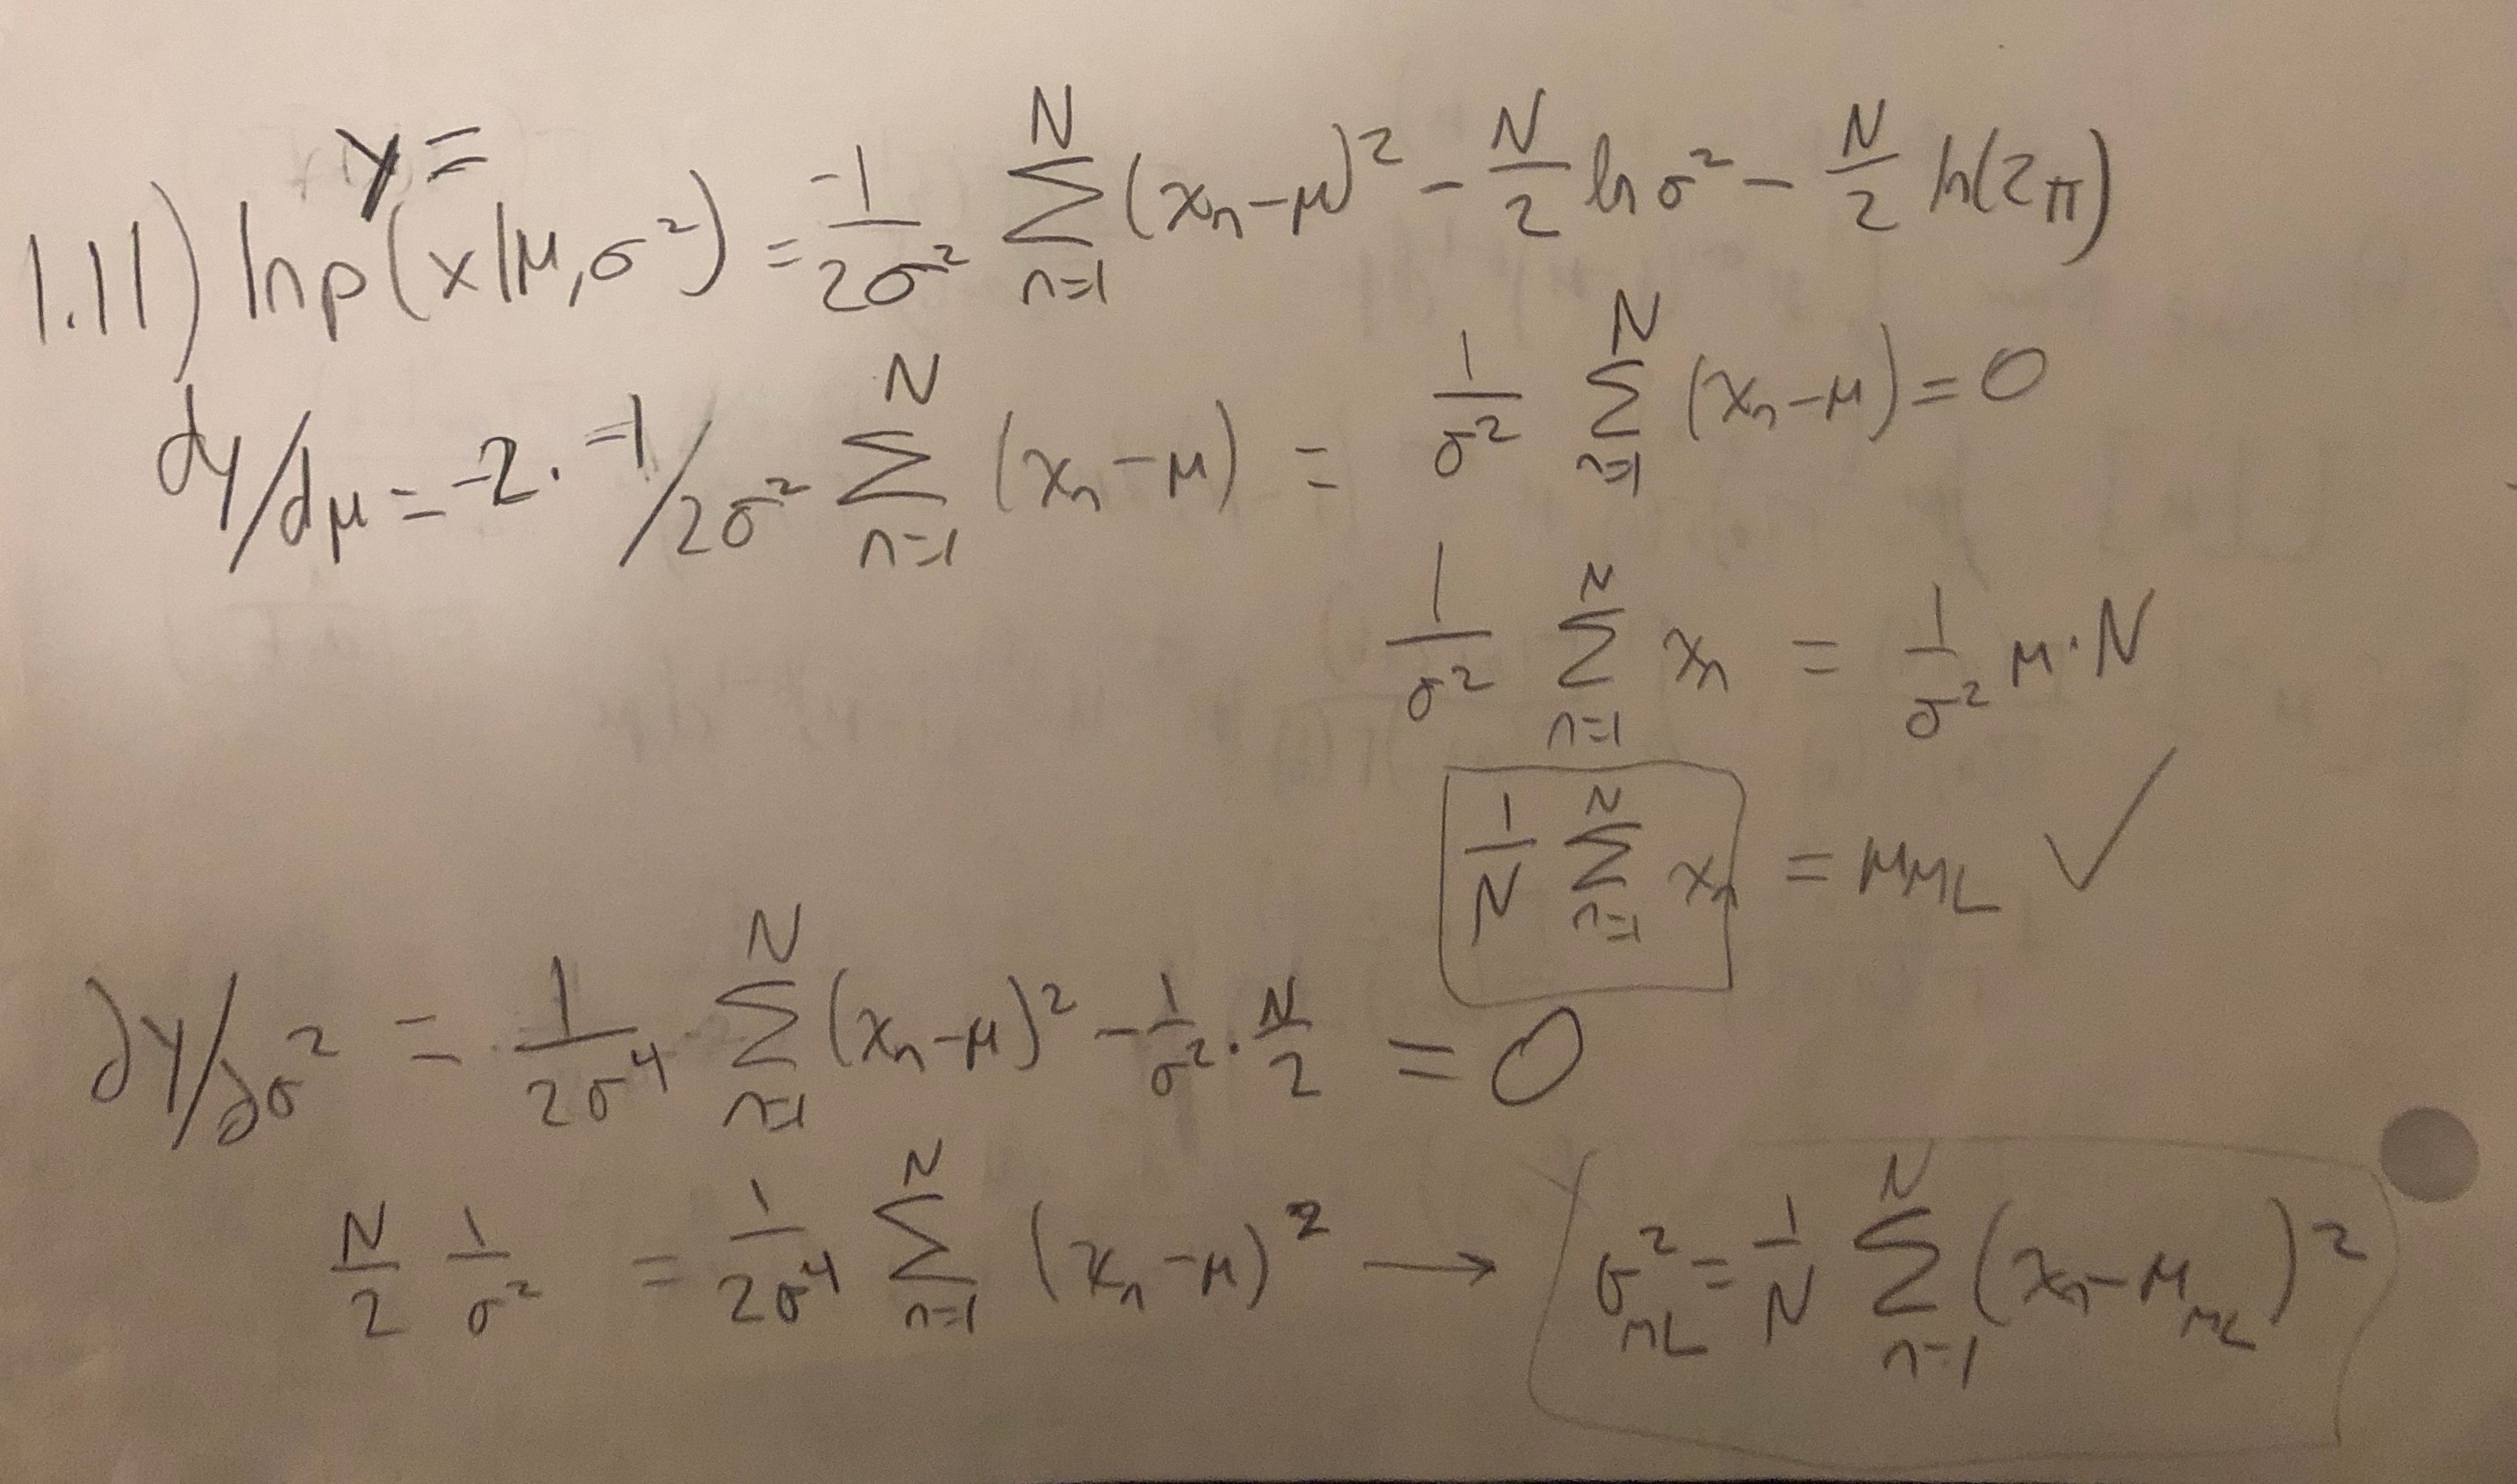 y =
1.11) ln p(x|μ,σ²) = -1/2σ² ∑_{n=1}^{N} (xₙ-μ)² - N/2 ln σ² - N/2 ln(2π)
dy/dμ = -2 · -1/2σ² ∑_{n=1}^{N} (xₙ-μ) = 1/σ² ∑_{n=1}^{N} (xₙ-μ) = 0
1/σ² ∑_{n=1}^{N} xₙ = 1/σ² μ·N
1/N ∑_{n=1}^{N} xₙ = μ_ML ✓
∂y/∂σ² = 1/2σ⁴ ∑_{n=1}^{N} (xₙ-μ)² - 1/σ² · N/2 = 0
N/2 1/σ² = 1/2σ⁴ ∑_{n=1}^{N} (xₙ-μ)² → σ²_ML = 1/N ∑_{n=1}^{N} (xₙ-μ_ML)²